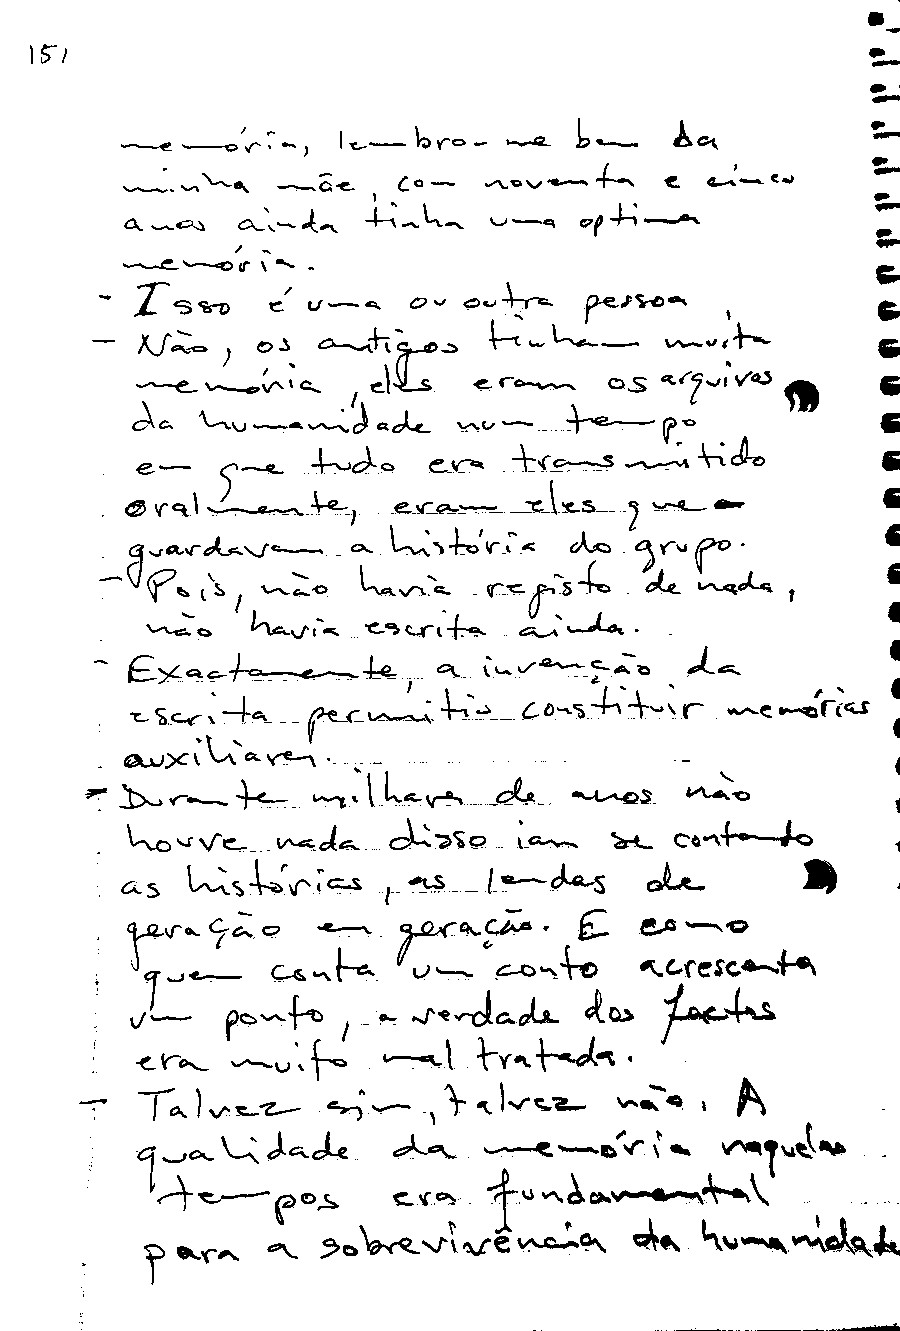 151
memória, lembro-me bem da
minha mãe, com noventa e cinco
anos ainda tinha uma optima
memória.
- Isso é uma ou outra pessoa,
- Não, os antigos tinham muita
memória, eles eram os arquivos
da humanidade num tempo
em que tudo era transmitido
oralmente, eram eles que
guardavam a história do grupo.
- Pois, não havia registo de nada,
não havia escrita ainda.
- Exactamente, a invenção da
escrita permitiu constituir memórias
auxiliares.
- Durante milhares de anos não
houve nada disso iam se contando
as histórias, as lendas de
geração em geração. E como
quem conta um conto acrescenta
um ponto, a verdade dos factos
era muito mal tratada.
- Talvez sim, talvez não. A
qualidade da memória naquelas
tempos era fundamental
para a sobrevivência da humanidade